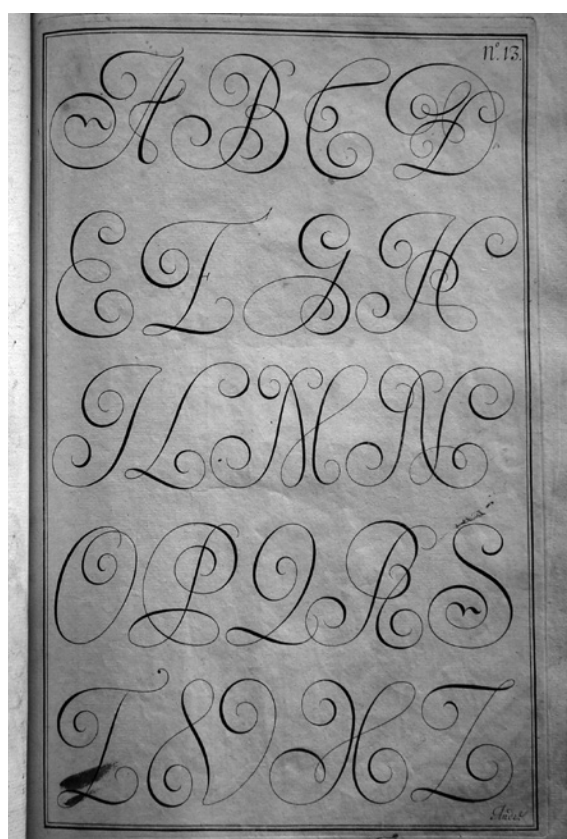 Nº. 13.
A B C D
E F G H
I L M N
O P Q R S
T V X Z